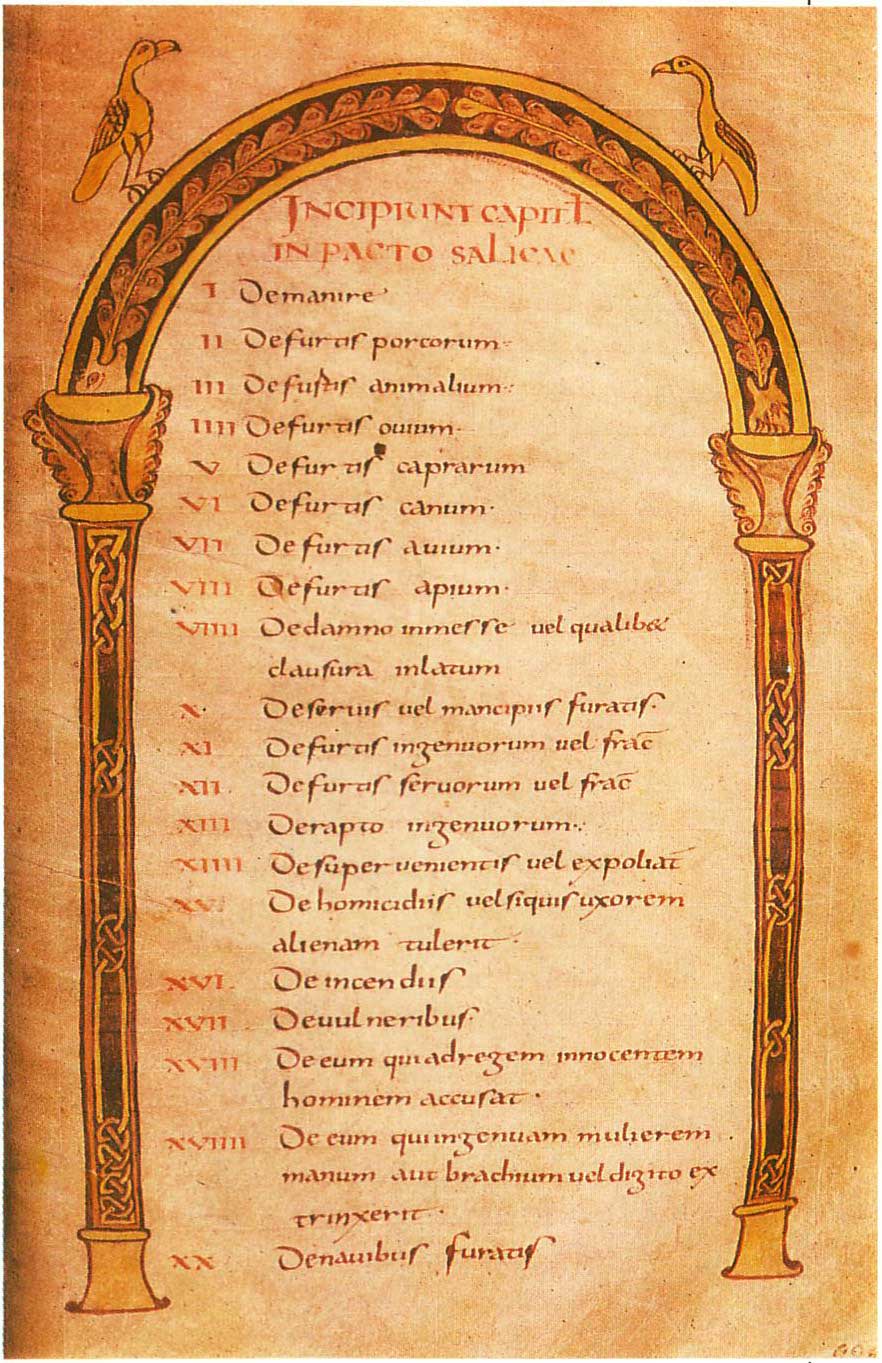 INCIPIUNT CAPITL
IN PACTO SALICAE
I Demanire
II Defurtis porcorum
III Defustis animalium
IIII Defurtis ouium
V Defurtis caprarum
VI Defurtis canum
VII Defurtis auium
VIII Defurtis apium
VIIII Dedamno inmesse uel qualib&
clausura inlatum
X Deseruis uel mancipiis furatis
XI Defurtis ingenuorum uel frac̄
XII Defurtis seruorum uel frac̄
XIII Derapto ingenuorum
XIIII Desuper uenientis uel expoliat̄
XV De homicidiis uelsiquisuxorem
alienam tulerit
XVI De incendiis
XVII Deuulneribus
XVIII De eum quiadregem innocentem
hominem accusat
XVIIII De eum quiingenuam mulierem
manum aut brachium ueldigito ex
trinxerit
XX Denauibus furatis